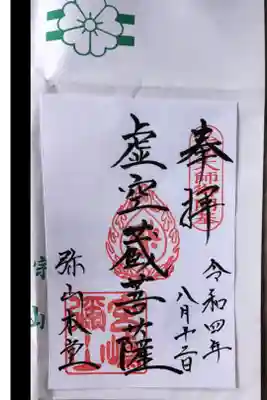 奉拝
令和四年
八月十三日
虚空蔵菩薩
弥山本堂
宮嶋
彌山